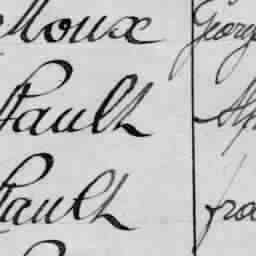 Moux Georg
Rault Alp
Rault fra